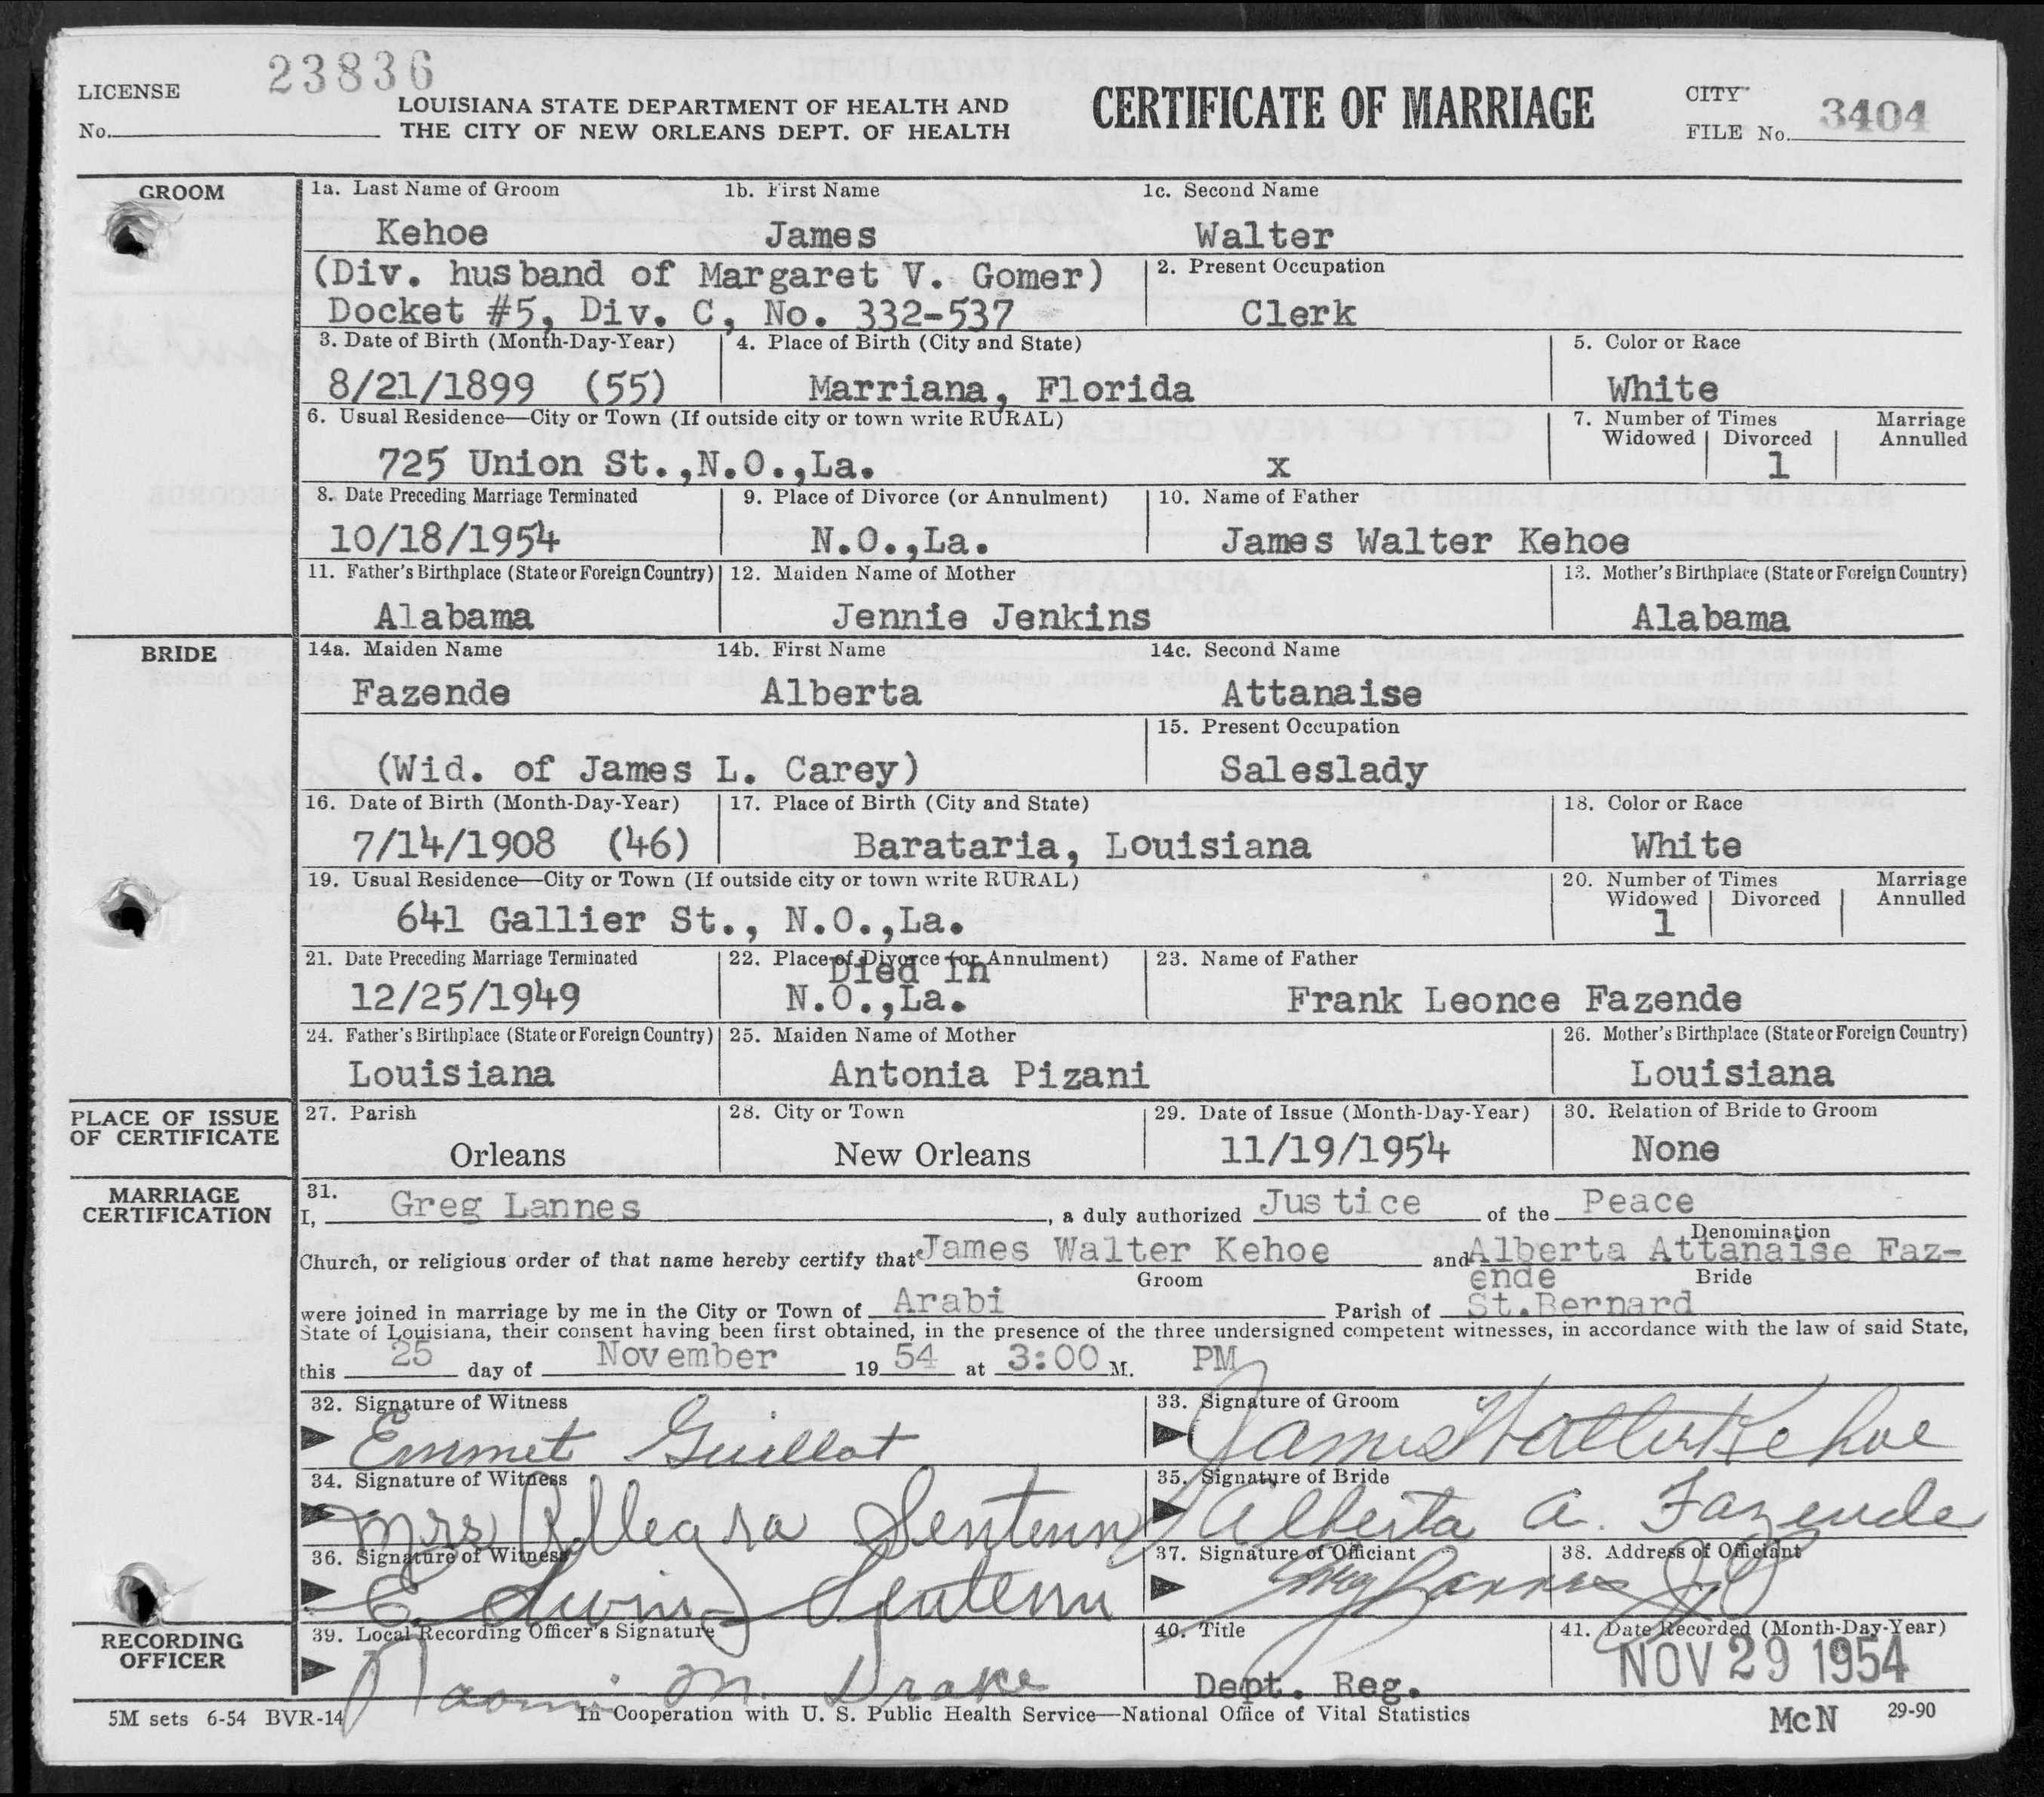 LICENSE No. 23836
LOUISIANA STATE DEPARTMENT OF HEALTH AND
THE CITY OF NEW ORLEANS DEPT. OF HEALTH
CERTIFICATE OF MARRIAGE
CITY FILE No. 3404
GROOM
1a. Last Name of Groom 1b. First Name 1c. Second Name
Kehoe James Walter
(Div. husband of Margaret V. Gomer) 2. Present Occupation
Docket #5, Div. C, No. 332-537 Clerk
3. Date of Birth (Month-Day-Year) 4. Place of Birth (City and State) 5. Color or Race
8/21/1899 (55) Marriana, Florida White
6. Usual Residence—City or Town (If outside city or town write RURAL) 7. Number of Times Marriage
Widowed Divorced Annulled
725 Union St.,N.O.,La. x 1
8. Date Preceding Marriage Terminated 9. Place of Divorce (or Annulment) 10. Name of Father
10/18/1954 N.O.,La. James Walter Kehoe
11. Father's Birthplace (State or Foreign Country) 12. Maiden Name of Mother 13. Mother's Birthplace (State or Foreign Country)
Alabama Jennie Jenkins Alabama
BRIDE
14a. Maiden Name 14b. First Name 14c. Second Name
Fazende Alberta Attanaise
15. Present Occupation
(Wid. of James L. Carey) Saleslady
16. Date of Birth (Month-Day-Year) 17. Place of Birth (City and State) 18. Color or Race
7/14/1908 (46) Barataria, Louisiana White
19. Usual Residence—City or Town (If outside city or town write RURAL) 20. Number of Times Marriage
Widowed Divorced Annulled
641 Gallier St., N.O.,La. 1
21. Date Preceding Marriage Terminated 22. Place of Divorce (or Annulment) 23. Name of Father
Died in
12/25/1949 N.O.,La. Frank Leonce Fazende
24. Father's Birthplace (State or Foreign Country) 25. Maiden Name of Mother 26. Mother's Birthplace (State or Foreign Country)
Louisiana Antonia Pizani Louisiana
PLACE OF ISSUE OF CERTIFICATE
27. Parish 28. City or Town 29. Date of Issue (Month-Day-Year) 30. Relation of Bride to Groom
Orleans New Orleans 11/19/1954 None
MARRIAGE CERTIFICATION
31.
I, Greg Lannes, a duly authorized Justice of the Peace
Denomination
Church, or religious order of that name hereby certify that James Walter Kehoe and Alberta Attanaise Faz-
Groom ende Bride
were joined in marriage by me in the City or Town of Arabi Parish of St.Bernard
State of Louisiana, their consent having been first obtained, in the presence of the three undersigned competent witnesses, in accordance with the law of said State,
this 25 day of November 19 54 at 3:00 M. PM
32. Signature of Witness 33. Signature of Groom
Emmet Guillot James Walter Kehoe
34. Signature of Witness 35. Signature of Bride
Mrs Allegra Sentenn Alberta A. Fazende
36. Signature of Witness 37. Signature of Officiant 38. Address of Officiant
E. Edwin Sentenn Greg Lannes
RECORDING OFFICER
39. Local Recording Officer's Signature 40. Title 41. Date Recorded (Month-Day-Year)
Naomi M. Drake Dept. Reg. NOV 29 1954
5M sets 6-54 BVR-14 In Cooperation with U. S. Public Health Service—National Office of Vital Statistics McN 29-90